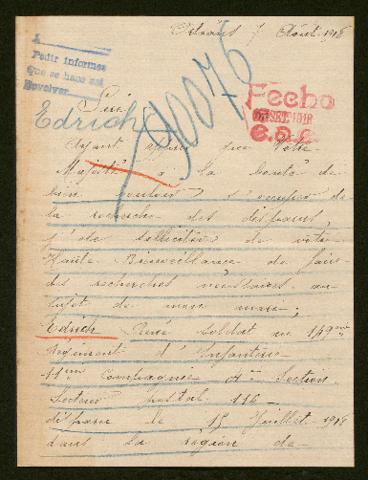 7 Août 1918
1
Pedir informes
que se hace así
Devolver
Fecho
E. D. C.
Edrich
90076
Sire
Ayant appris que Votre
Majesté a la bonté de
bien vouloir s'occuper de
la recherche des disparus,
je de solliciter de votre
Haute Bienveillance de faire
des recherches nécessaires au
sujet de mon mari,
Edrich René soldat au 149me
Régiment d'Infanterie
11me Compagnie Section
Secteur postal 116
disparu le 15 Juillet 1918
dans la région de